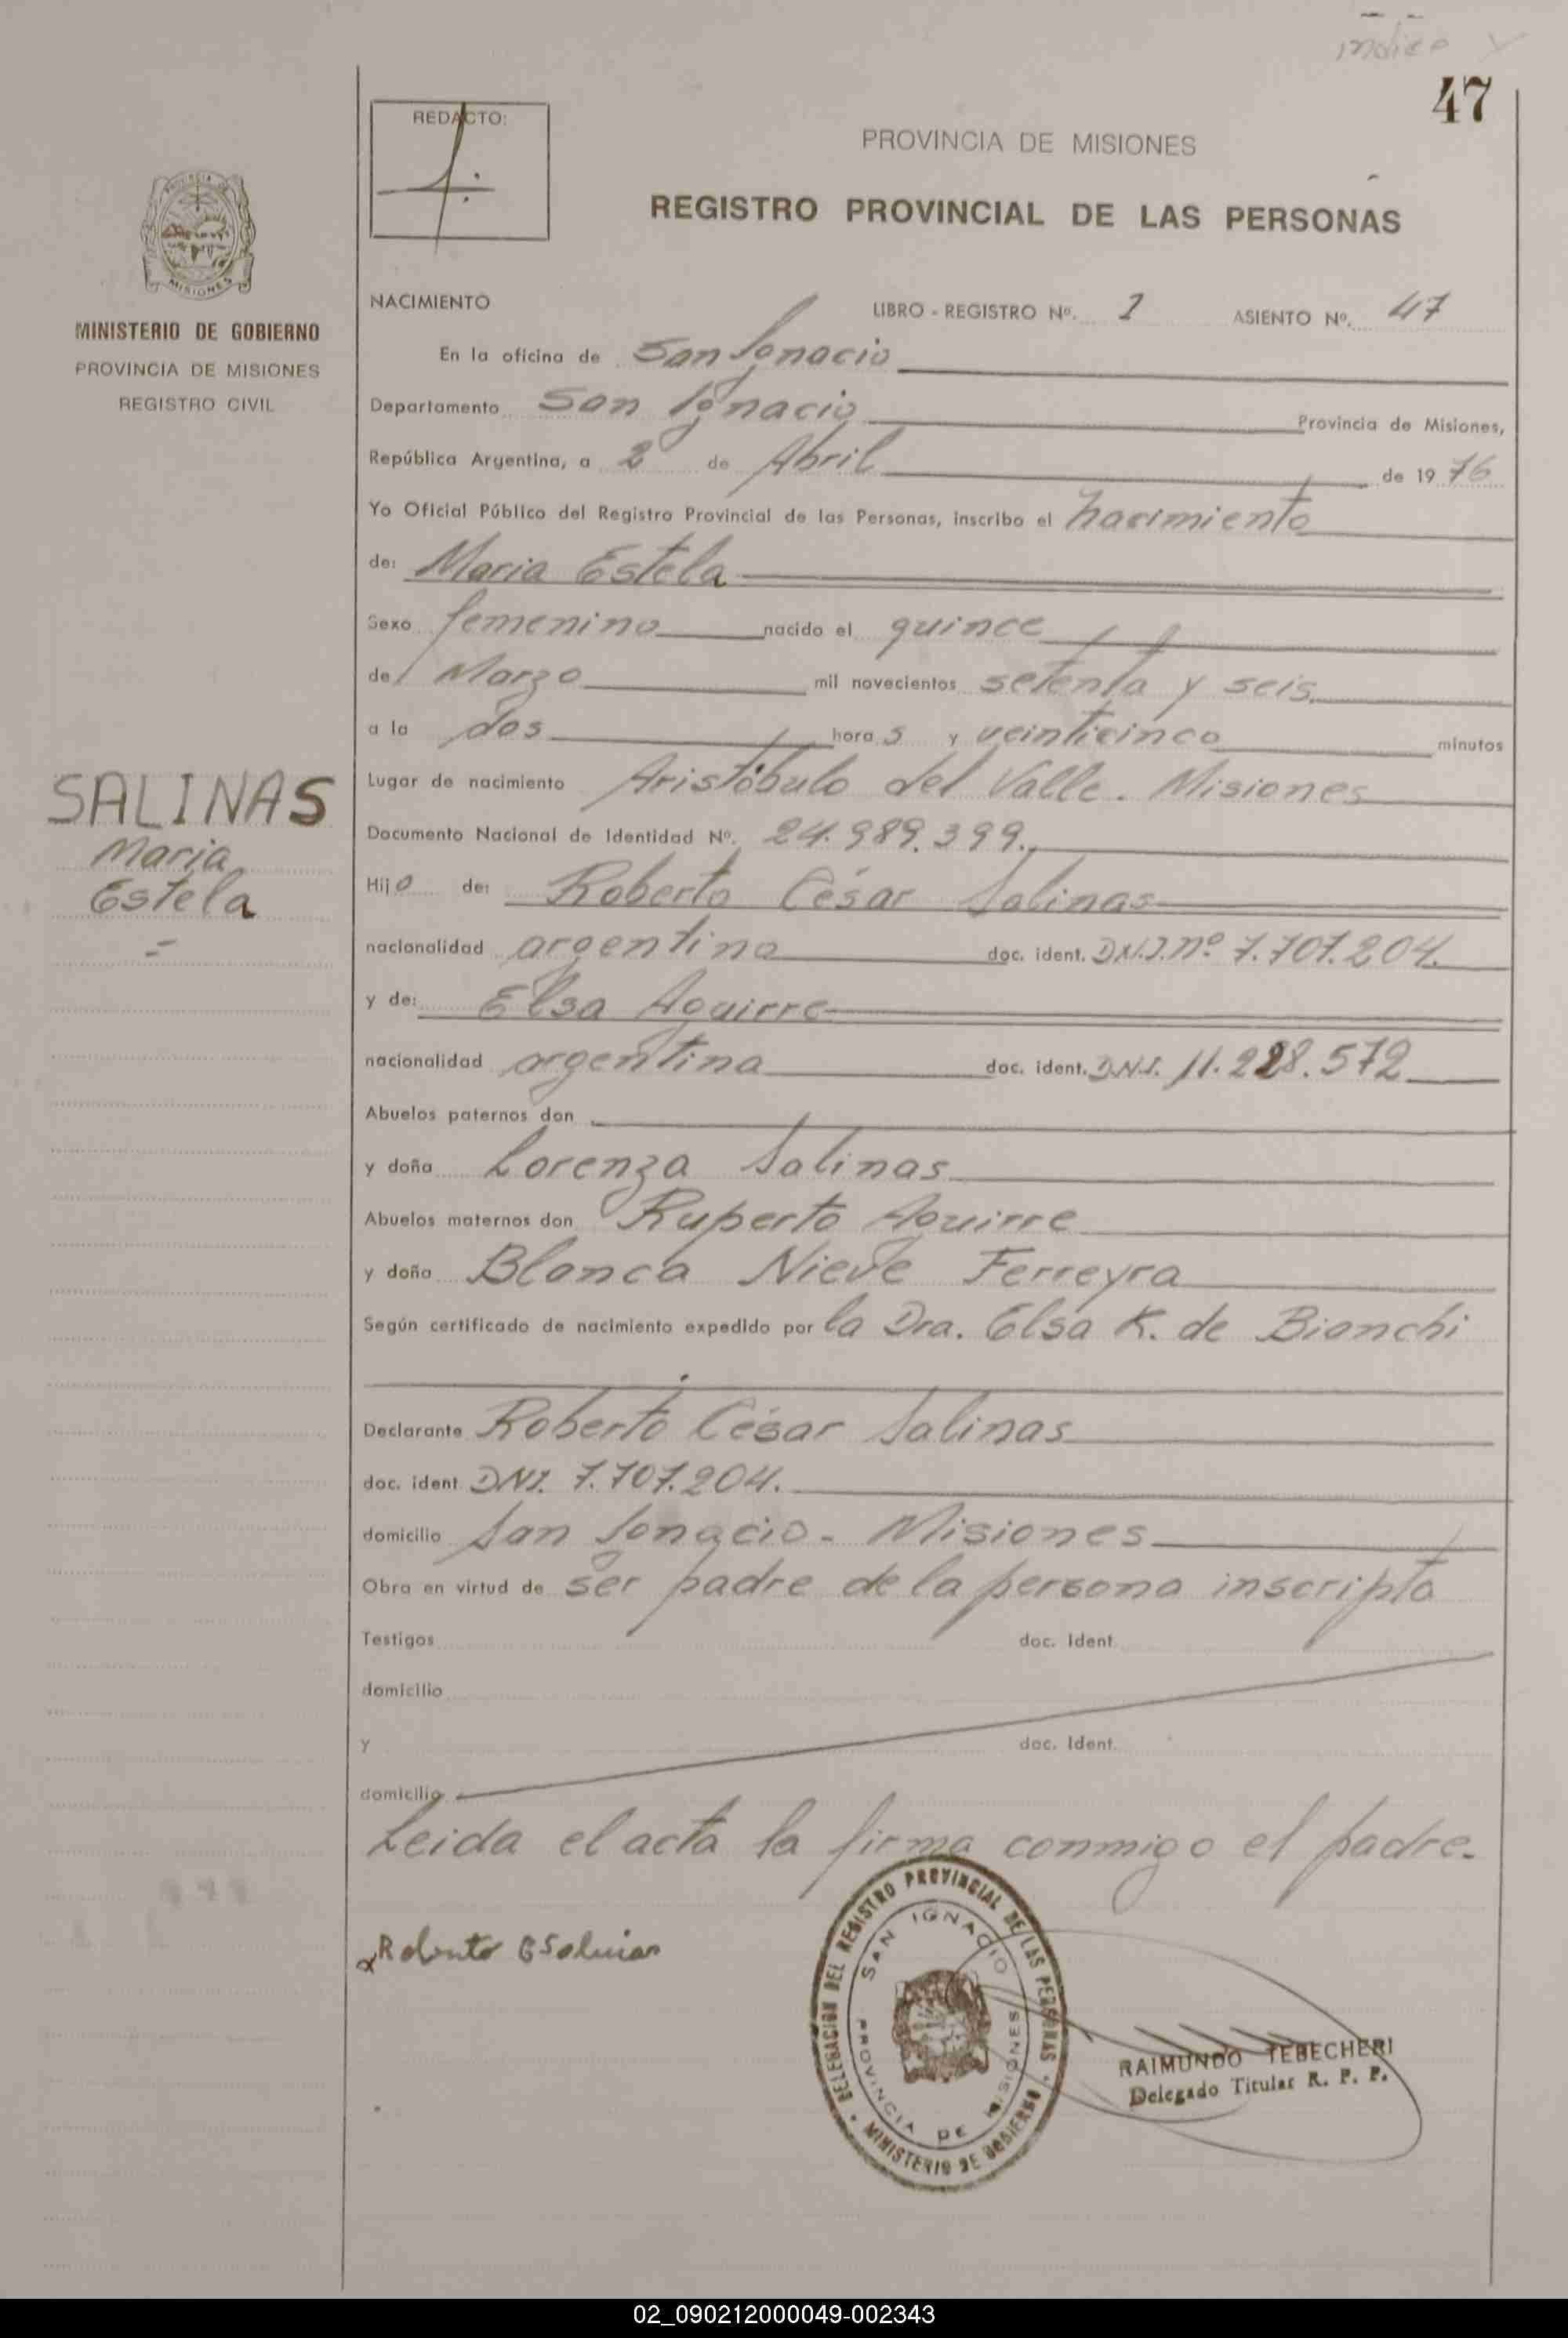 indice
47
REDACTO:
PROVINCIA DE MISIONES
REGISTRO PROVINCIAL DE LAS PERSONAS
MISIONES
MINISTERIO DE GOBIERNO
PROVINCIA DE MISIONES
REGISTRO CIVIL
NACIMIENTO LIBRO - REGISTRO Nº. 1 ASIENTO Nº. 47
En la oficina de San Ignacio
Departamento San Ignacio Provincia de Misiones,
República Argentina, a 2 de Abril de 1976
Yo Oficial Público del Registro Provincial de las Personas, inscribo el nacimiento
de: Maria Estela
Sexo femenino nacido el quince
de Marzo mil novecientos setenta y seis
a la dos horas y veinticinco minutos
Lugar de nacimiento Aristóbulo del Valle. Misiones
SALINAS
Maria
Estela
Documento Nacional de Identidad Nº. 24.989.399.
Hijo de: Roberto César Salinas
nacionalidad argentina doc. ident. D.N.I. nº 7.707.204.
y de: Elsa Aguirre
nacionalidad argentina doc. ident. D.N.I. 11.228.572
Abuelos paternos don
y doña Lorenza Salinas
Abuelos maternos don Ruperto Aguirre
y doña Blanca Nieve Ferreyra
Según certificado de nacimiento expedido por la Dra. Elsa K. de Bianchi
Declarante Roberto César Salinas
doc. ident DNI. 7.707.204.
domicilio San Ignacio - Misiones
Obra en virtud de ser padre de la persona inscripta
Testigos doc. Ident.
domicilio
y doc. Ident.
domicilio
Leida el acta la firma conmigo el padre.
Roberto C Salinas
DELEGACION DEL REGISTRO PROVINCIAL DE LAS PERSONAS
MINISTERIO DE GOBIERNO
SAN IGNACIO
PROVINCIA DE MISIONES
RAIMUNDO TEBECHERI
Delegado Titular R. P. P.
02_090212000049-002343